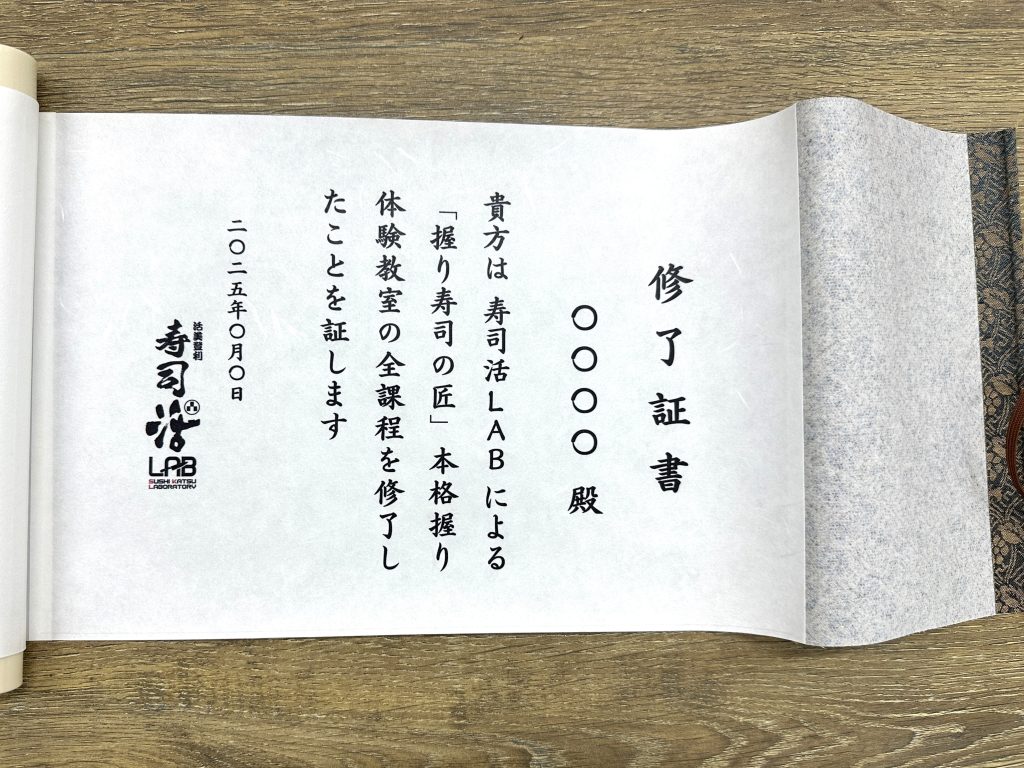 修了証書
〇〇〇〇 殿
貴方は 寿司活LABによる
「握り寿司の匠」本格握り
体験教室の全課程を修了し
たことを証します
二〇二五年〇月〇日
活美登利
寿司活
LAB
SUSHI KATSU
LABORATORY